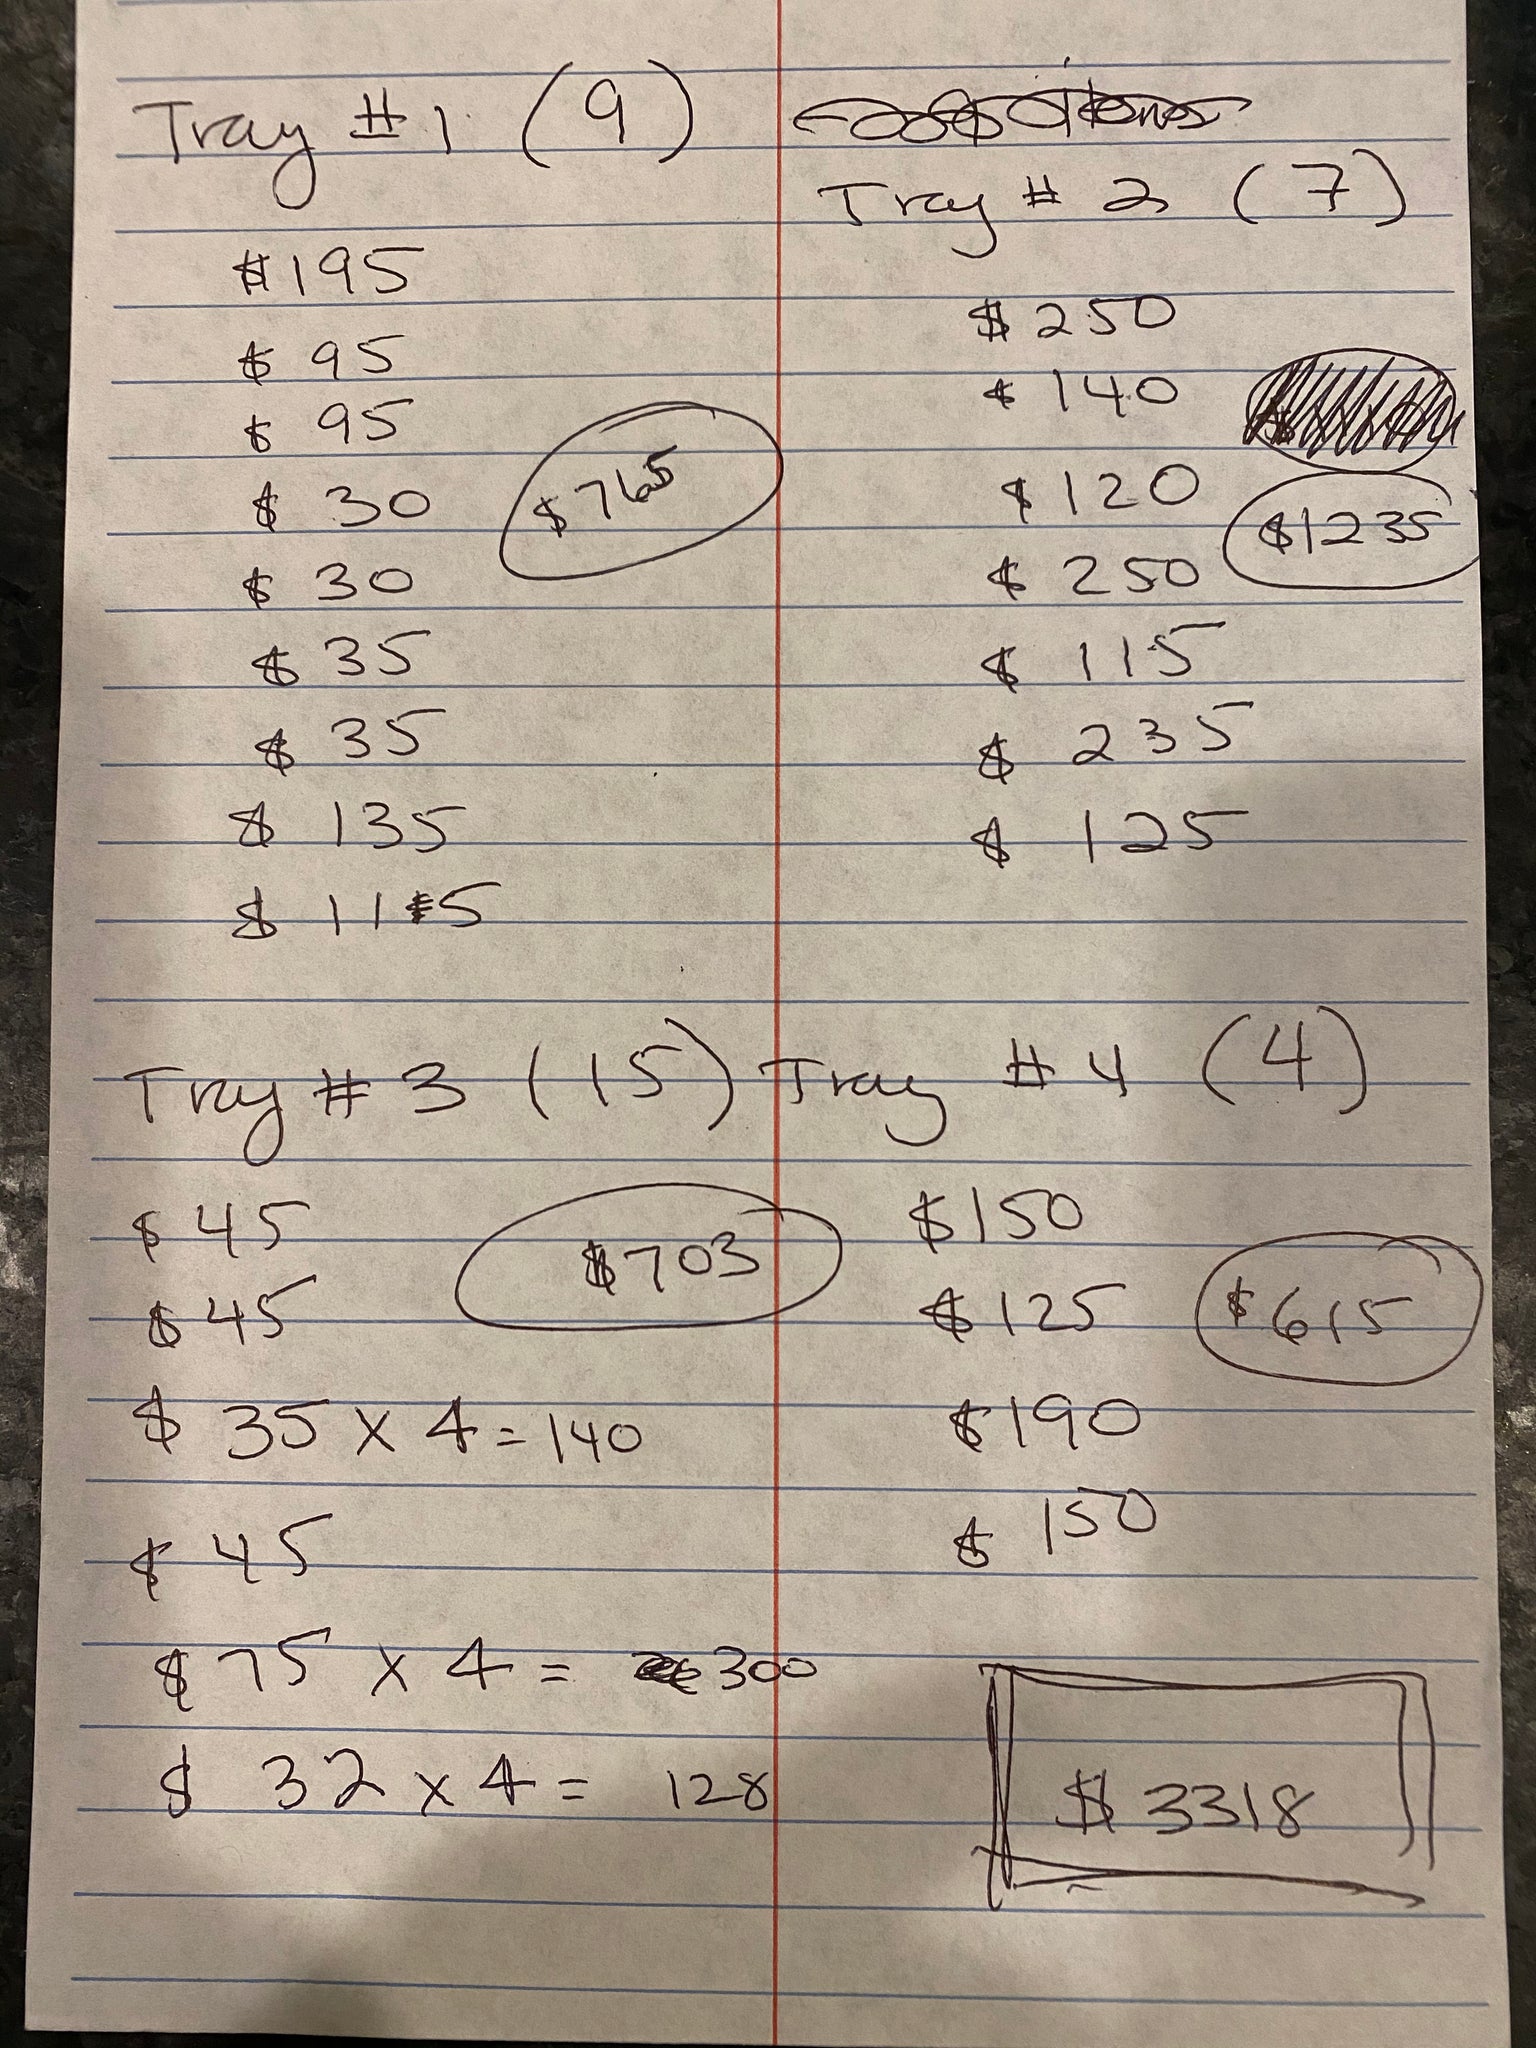 Tray #1 (9)
$195
$ 95
$ 95
$ 30
$ 30
$ 35
$ 35
$ 135
$ 115
$765
Tray # 2 (7)
$ 250
$ 140
$ 120
$ 250
$ 115
$ 235
$ 125
$1235
Tray # 3 (15)
$ 45
$ 45
$ 35 x 4 = 140
$ 45
$ 75 x 4 = 300
$ 32 x 4 = 128
$703
Tray # 4 (4)
$150
$ 125
$190
$ 150
$615
$ 3318